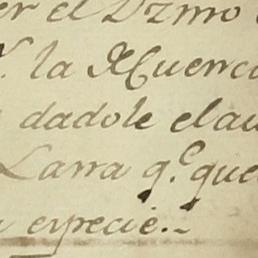 er el Dzmo
la Huerca
dadole el au
Larra q.e que
especie.~